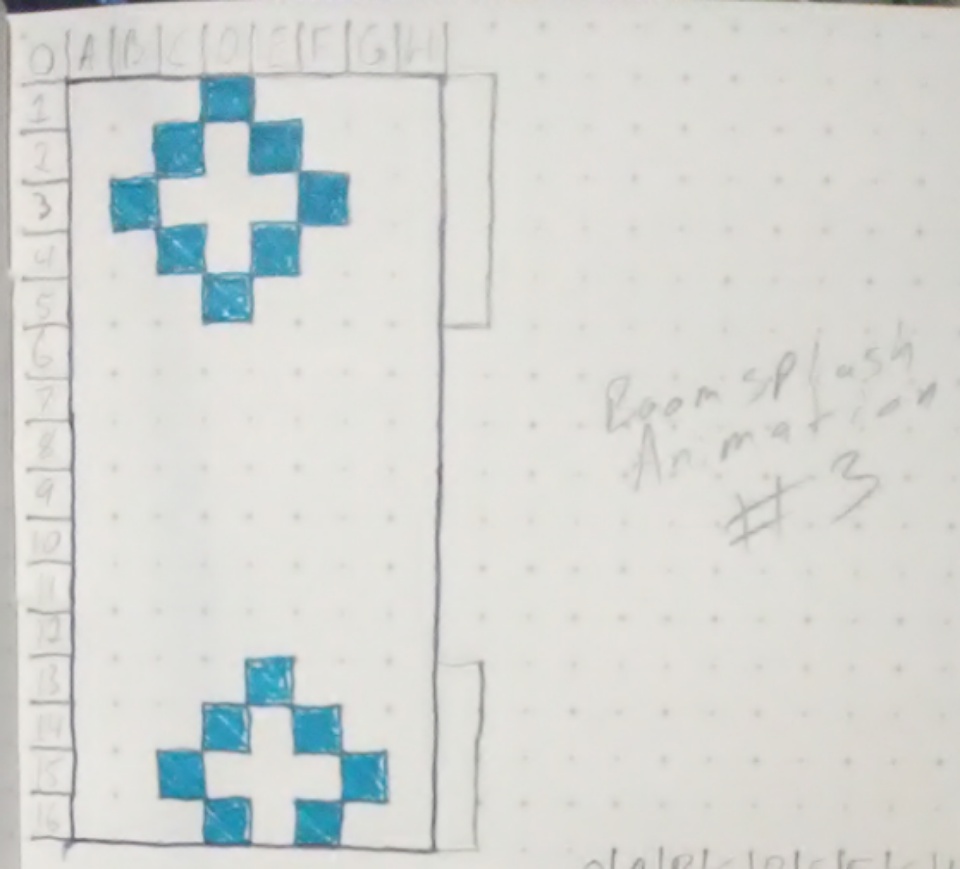 0 A B C D E F G H
1
2
3
4
5
6
7
8
9
10
11
12
13
14
15
16
Room splash
Animation
# 3
0 A B C D E F G H